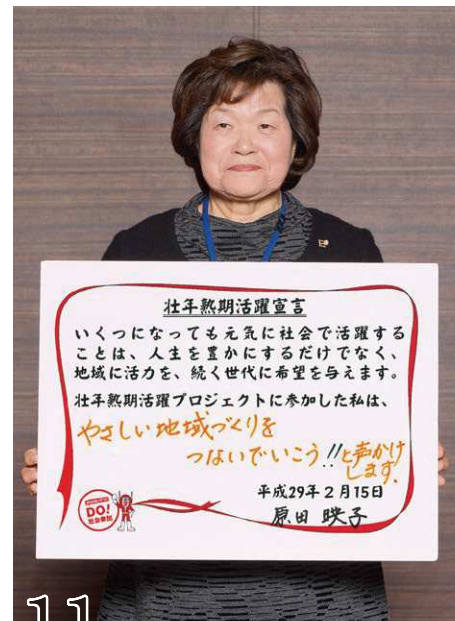 壮年熟期活躍宣言
いくつになっても元気に社会で活躍する
ことは、人生を豊かにするだけでなく、
地域に活力を、続く世代に希望を与えます。
壮年熟期活躍プロジェクトに参加した私は、
やさしい地域づくりを
つないでいこう!!と声かけ
します。
平成29年2月15日
原田 映子
DO!
社会参加
11